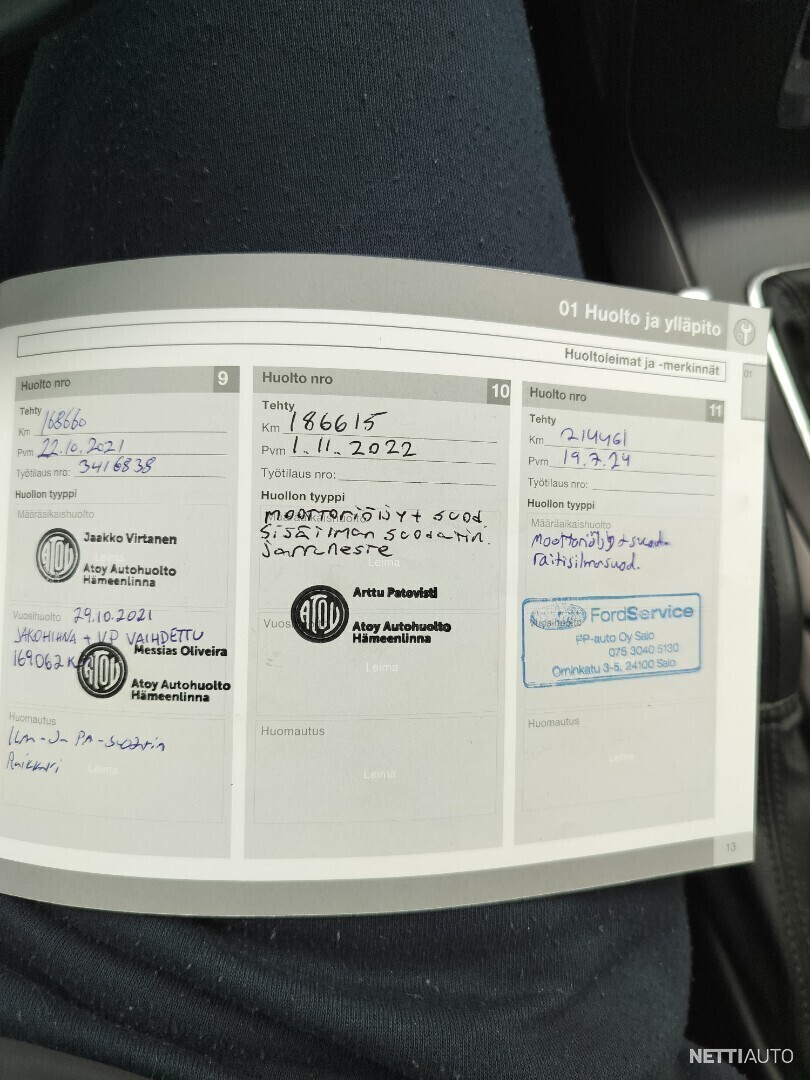 01 Huolto ja ylläpito
Huoltoleimat ja -merkinnät
01
Huolto nro 9
Tehty
Km 168660
Pvm 22.10.2021
Työtilaus nro: 3416838
Huollon tyyppi
Määräaikaishuolto
Jaakko Virtanen
ATOY
Atoy Autohuolto
Hämeenlinna
Vuosihuolto 29.10.2021
JAKOHIHNA + VP VAIHDETTU
169062 K
Messias Oliveira
ATOY
Atoy Autohuolto
Hämeenlinna
Huomautus
Leima
Huolto nro 10
Tehty
Km 186615
Pvm 1.11.2022
Työtilaus nro:
Huollon tyyppi
Määräaikaishuolto
moottoriöljy + suod.
Sisäilman suodatin.
Jarruneste
Leima
Arttu Patovisti
ATOY
Atoy Autohuolto
Hämeenlinna
Leima
Huomautus
Leima
Huolto nro 11
Tehty
Km 214461
Pvm 19.7.24
Työtilaus nro:
Huollon tyyppi
Määräaikaishuolto
moottoriöljy + suod.
raitisilmasuod.
Vuosihuolto
FordService
PP-auto Oy Salo
075 3040 5130
Ominkatu 3-5, 24100 Salo
Huomautus
Leima
13
NETTIAUTO